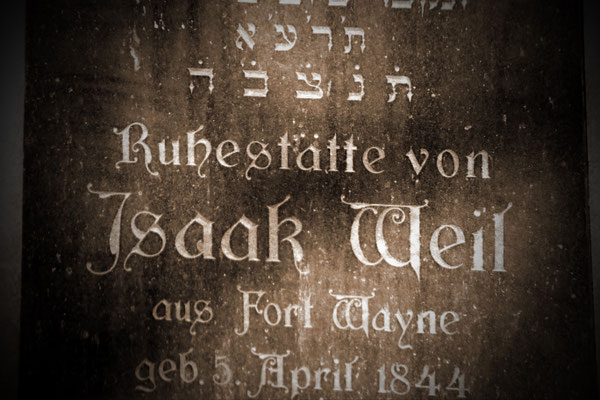 תרע״א
ת֗ נ֗ צ֗ ב֗ ה֗
Ruhestätte von
Isaak Weil
aus Fort Wayne
geb. 5. April 1844